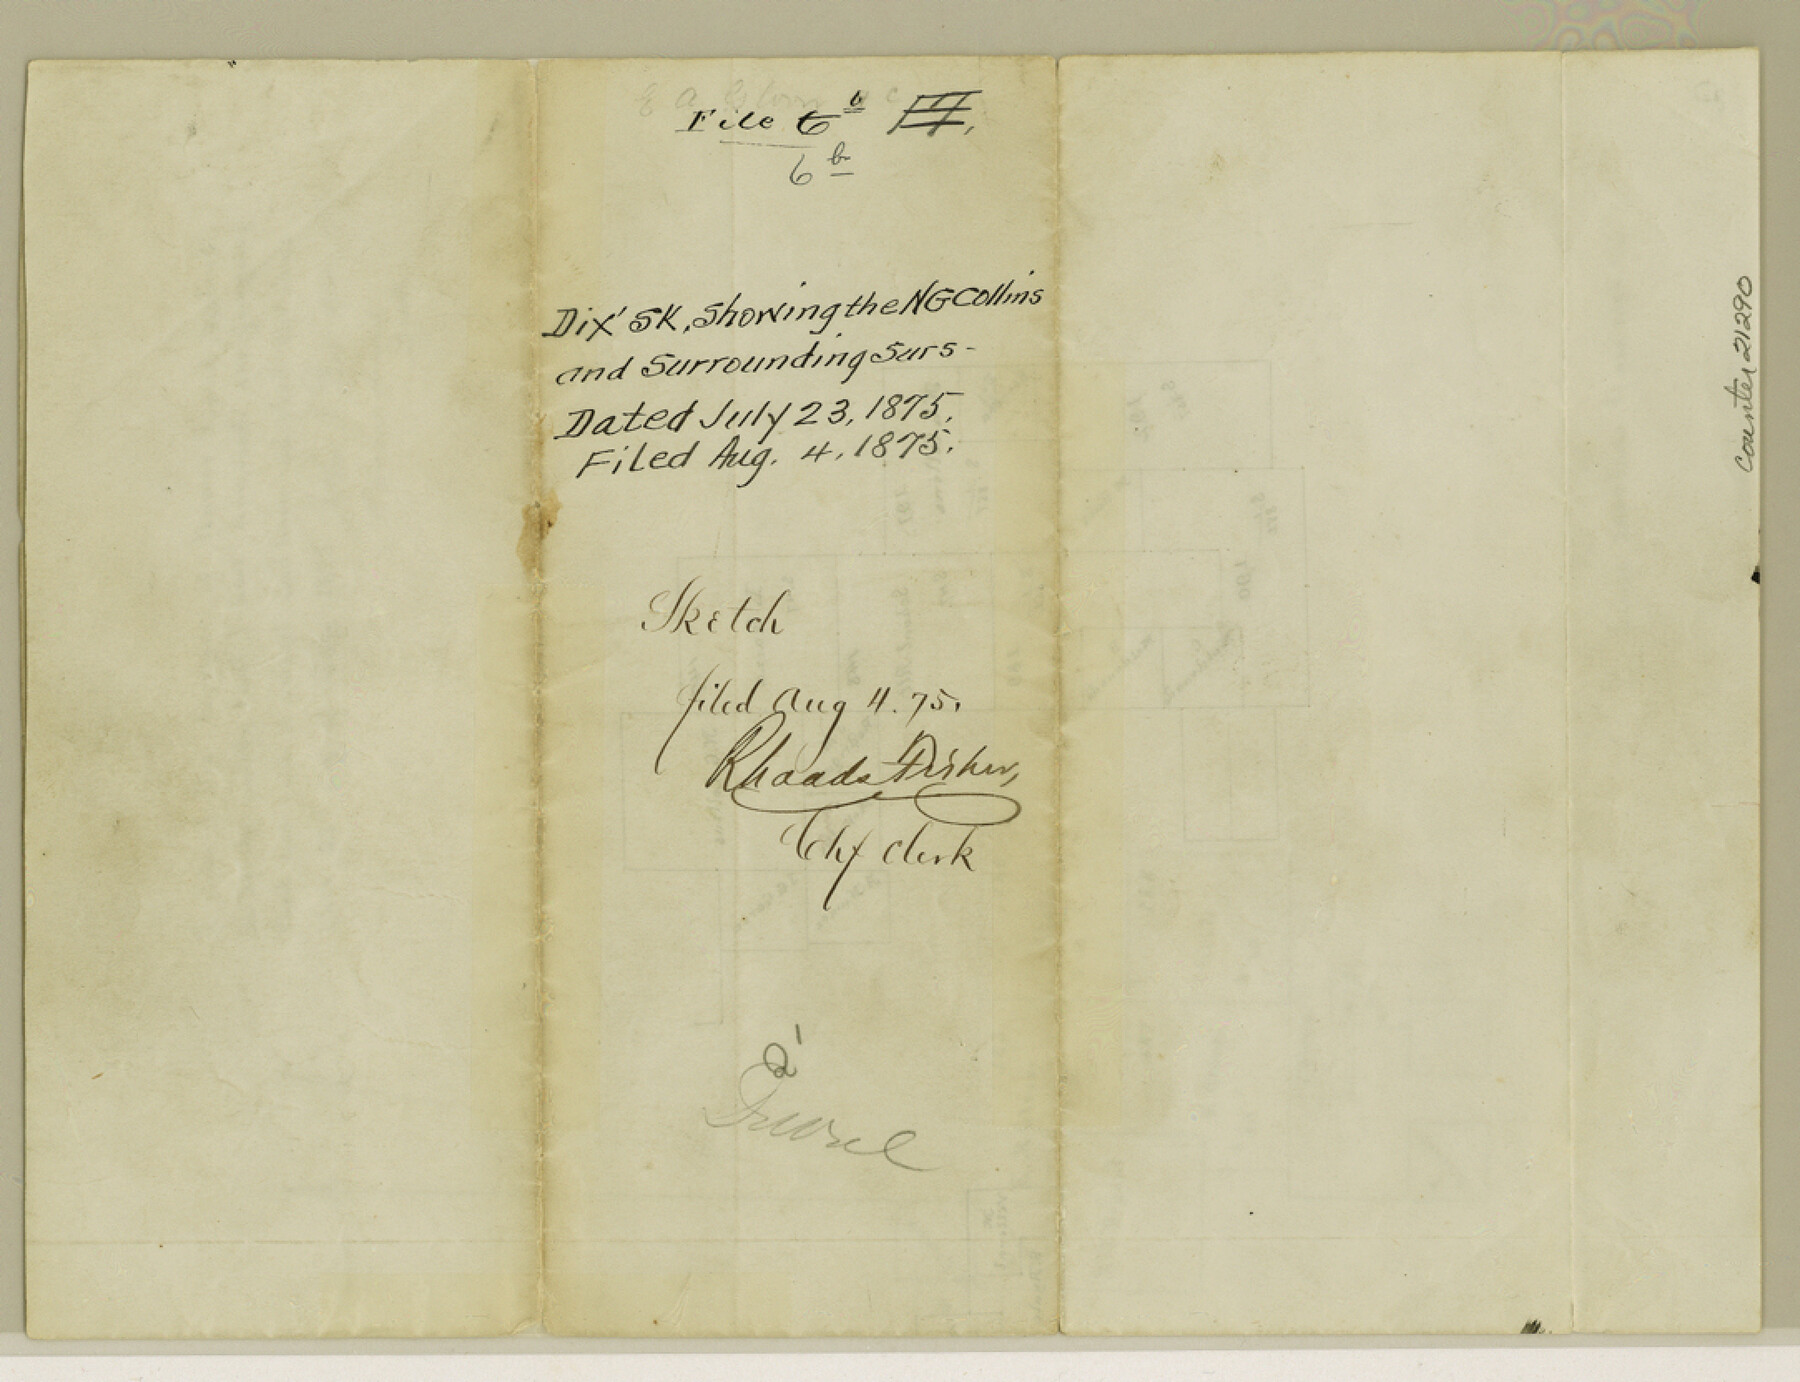 File 6 b
6 b
Dix' SK, showing the NG Collins
and Surrounding Surs -
Dated July 23, 1875.
Filed Aug. 4, 1875.
Sketch
filed Aug 4. 75.
Rhoads Fisher,
Chf Clerk
counter 21290